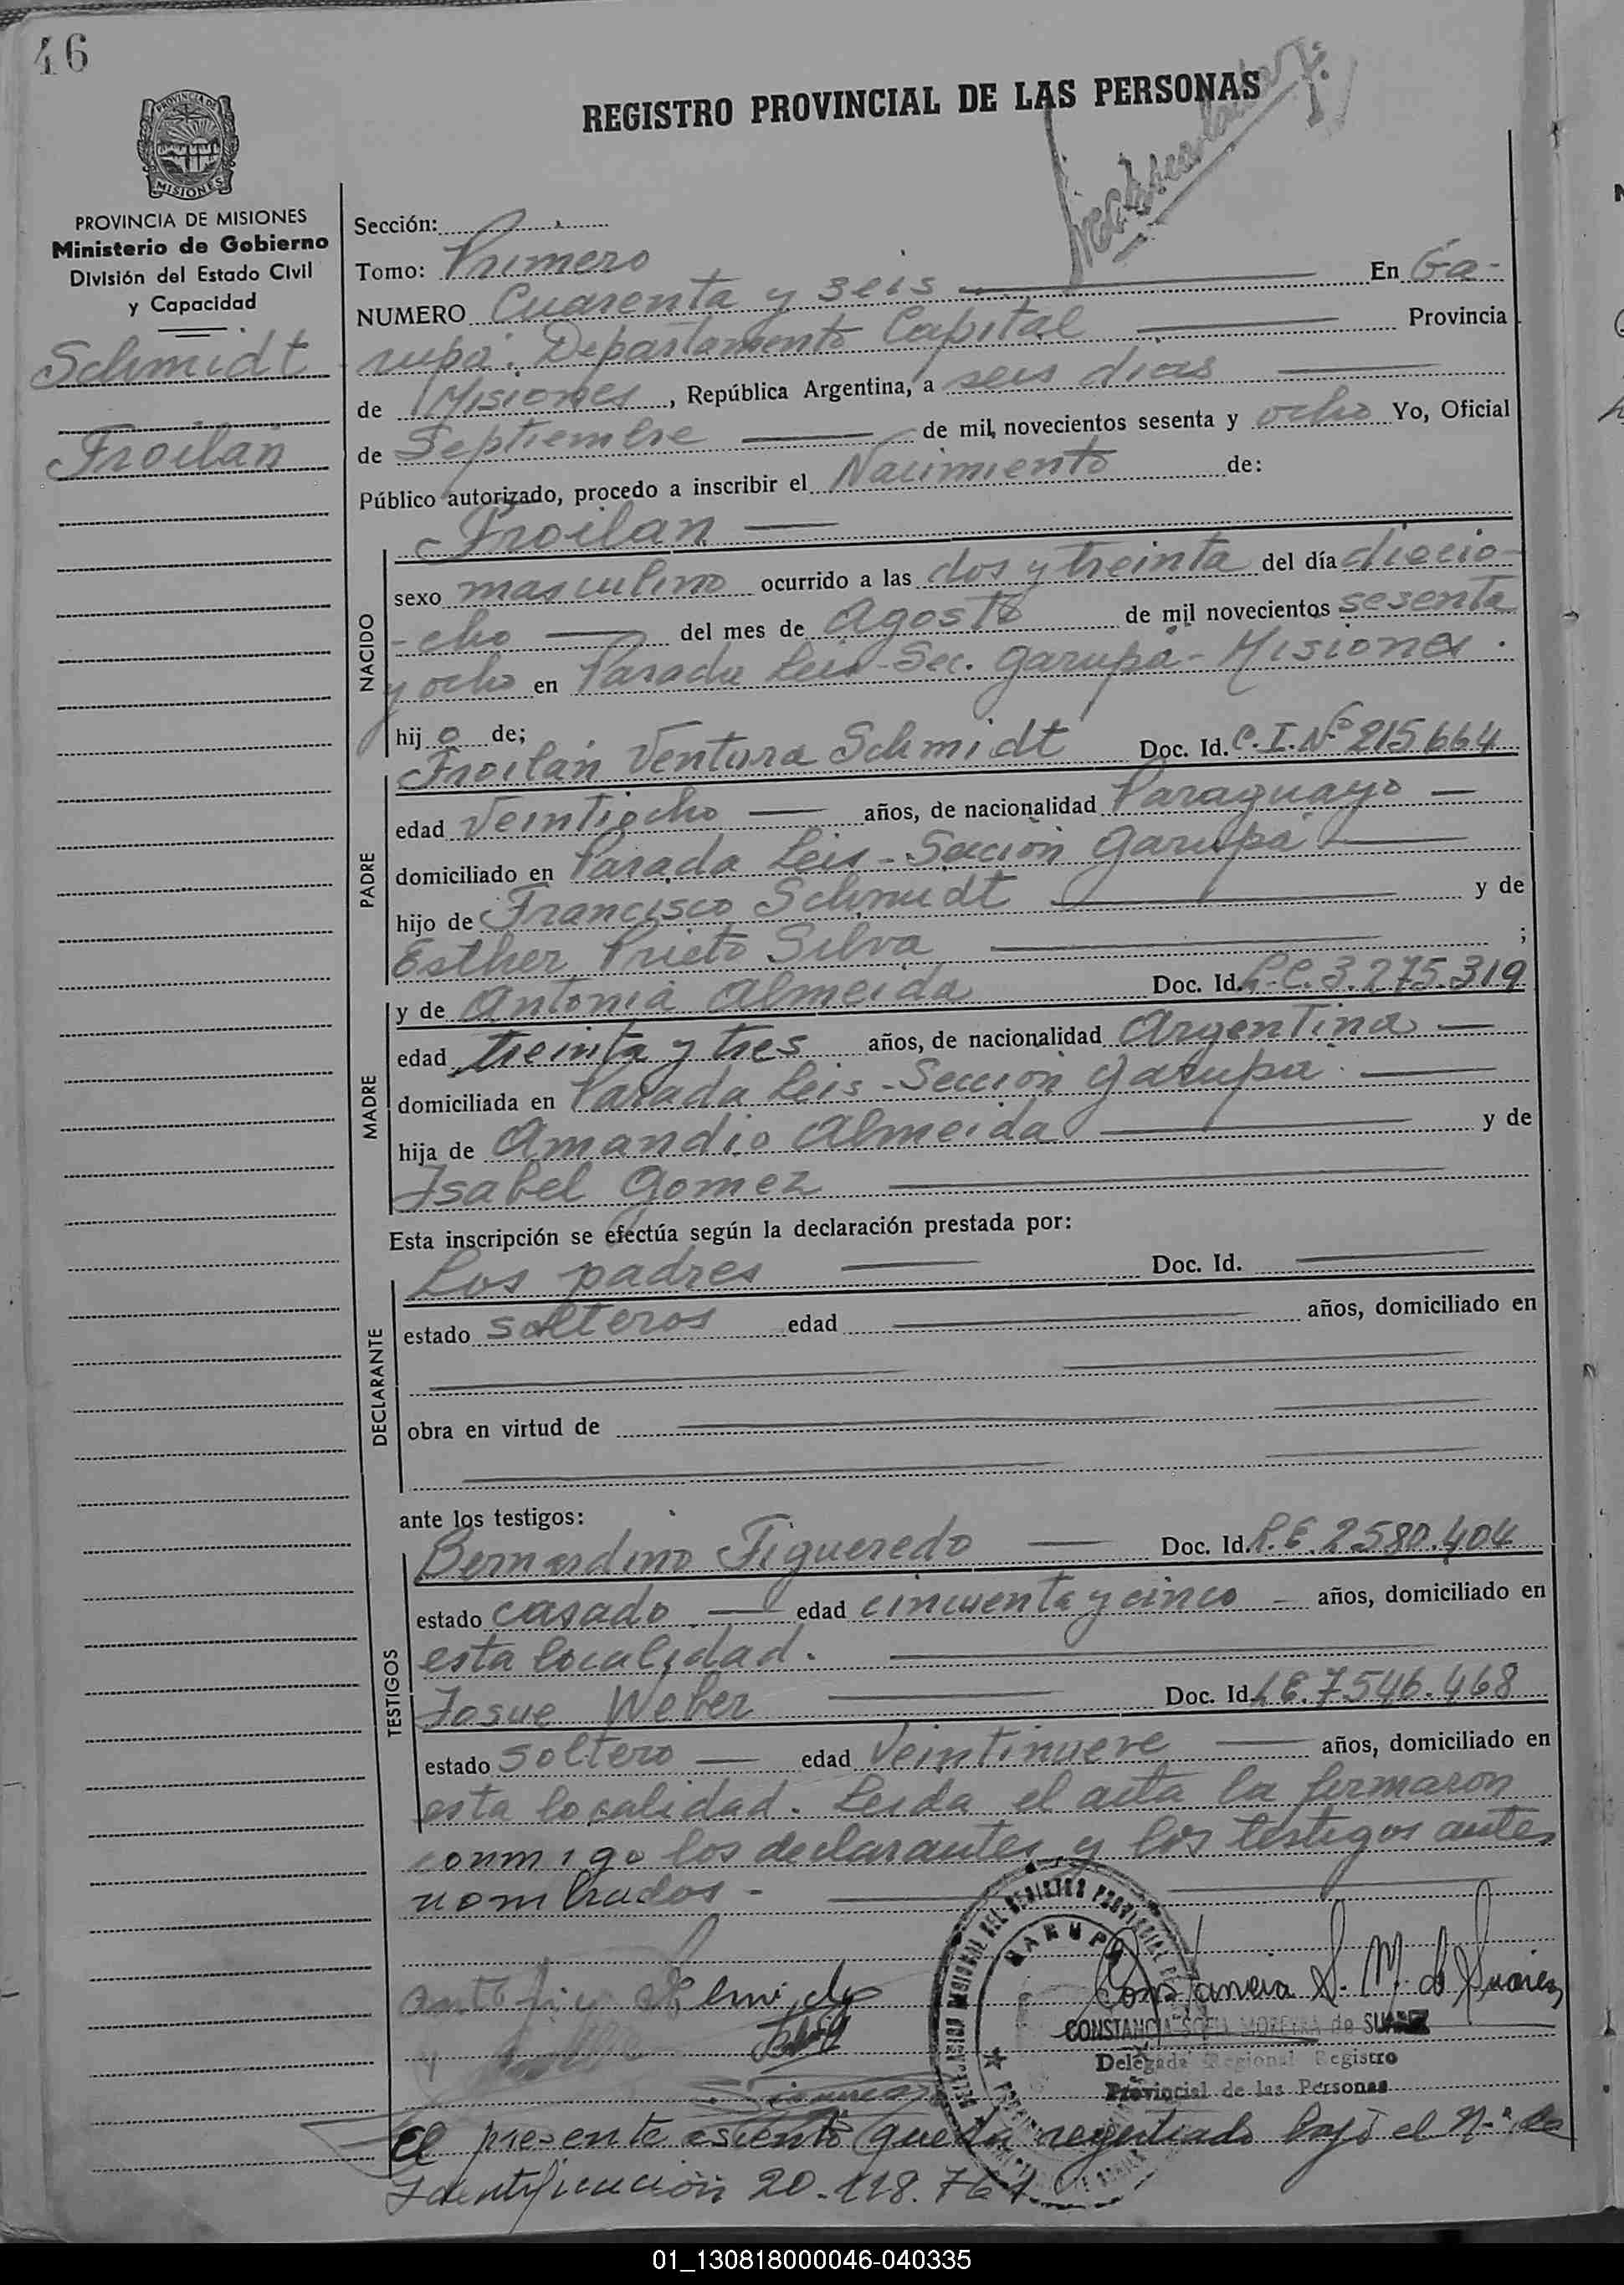 46
REGISTRO PROVINCIAL DE LAS PERSONAS
PROVINCIA DE
MISIONES
PROVINCIA DE MISIONES
Ministerio de Gobierno
División del Estado Civil
y Capacidad
Schmidt
Froilán
Sección:
Tomo: Primero
NUMERO Cuarenta y seis En Ga-
rupá. Departamento Capital Provincia
de Misiones, República Argentina, a seis dias
de Septiembre de mil novecientos sesenta y ocho Yo, Oficial
Público autorizado, procedo a inscribir el Nacimiento de:
Froilan
NACIDO
sexo masculino ocurrido a las dos y treinta del día diecio-
-cho del mes de Agosto de mil novecientos sesenta
y ocho en Parada Leis-Sec. Garupá-Misiones.
hij o de;
Froilán Ventura Schmidt Doc. Id. C.I.Nº 215664
PADRE
edad Veintiocho años, de nacionalidad Paraguayo
domiciliado en Parada Leis-Sección Garupá
hijo de Francisco Schmidt y de
Esther Prieto Silva ;
y de Antonia Almeida Doc. Id. L.C. 3.275.319
MADRE
edad treinta y tres años, de nacionalidad Argentina
domiciliada en Parada Leis-Sección Garupá.
hija de Amandio Almeida y de
Isabel Gomez
Esta inscripción se efectúa según la declaración prestada por:
Los padres Doc. Id.
DECLARANTE
estado solteros edad años, domiciliado en
obra en virtud de
ante los testigos:
Bernardino Figueredo Doc. Id. L.E. 2580.404
TESTIGOS
estado casado edad cincuenta y cinco años, domiciliado en
esta localidad.
Josue Weber Doc. Id. L.E. 7546.468
estado soltero edad Veintinueve años, domiciliado en
esta localidad. Leida el acta la firmaron
conmigo los declarantes y los testigos antes
nombrados-
GARUPA
Constancia S. M. de Suarez
CONSTANCIA SOFIA MOREIRA de SUAREZ
Delegada Regional Registro
Provincial de las Personas
El presente asiento queda registrado bajo el N.º de
Identificación 20.118.761
01_130818000046-040335